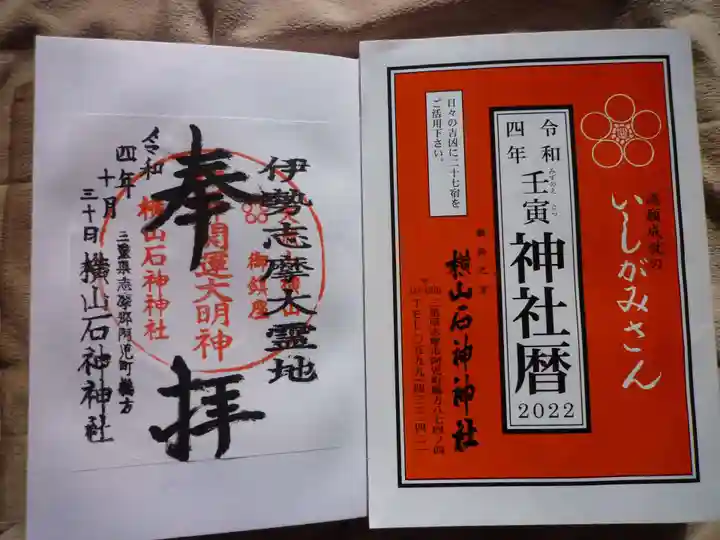 伊勢志摩大霊地
奉拝
開運大明神
横山石神神社
令和
四年
十月
三十日
三重県志摩郡阿児町鵜方
横山石神神社
いしがみさん
令和
四年
壬寅
みずのえ とら
神社暦
2022
日々の吉凶に二十七宿を
ご活用下さい。
横山石神神社